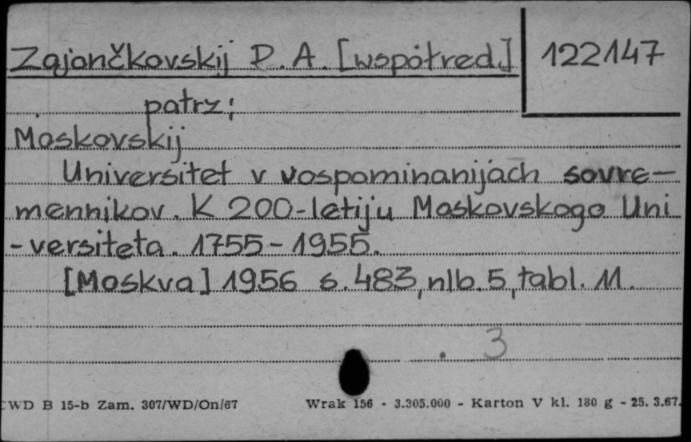 Zajančkovskij P. A. [współred.] 122147
patrz:
Moskovskij
Universitet v vospominanijach sovre-
mennikov. K 200-letiju Moskovskogo Uni
-versiteta. 1755-1955.
[Moskva] 1956 s. 483, nlb. 5, tabl. 11.
3
CWD B 15-b Zam. 307/WD/On/67 Wrak 156 - 3.305.000 - Karton V kl. 180 g - 25. 3.67.